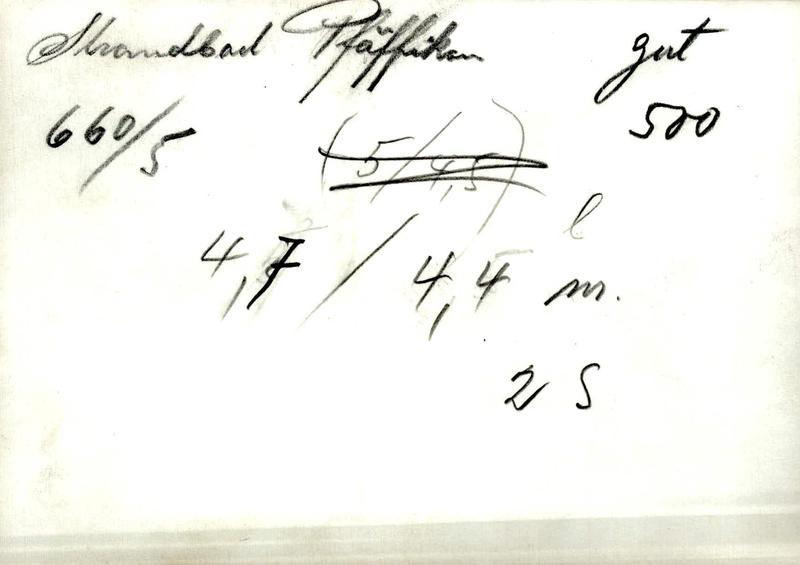 Strandbad Pfäffikon gut
660/5 (5/4,5) 500
l
4,7 / 4,4 m.
2 S